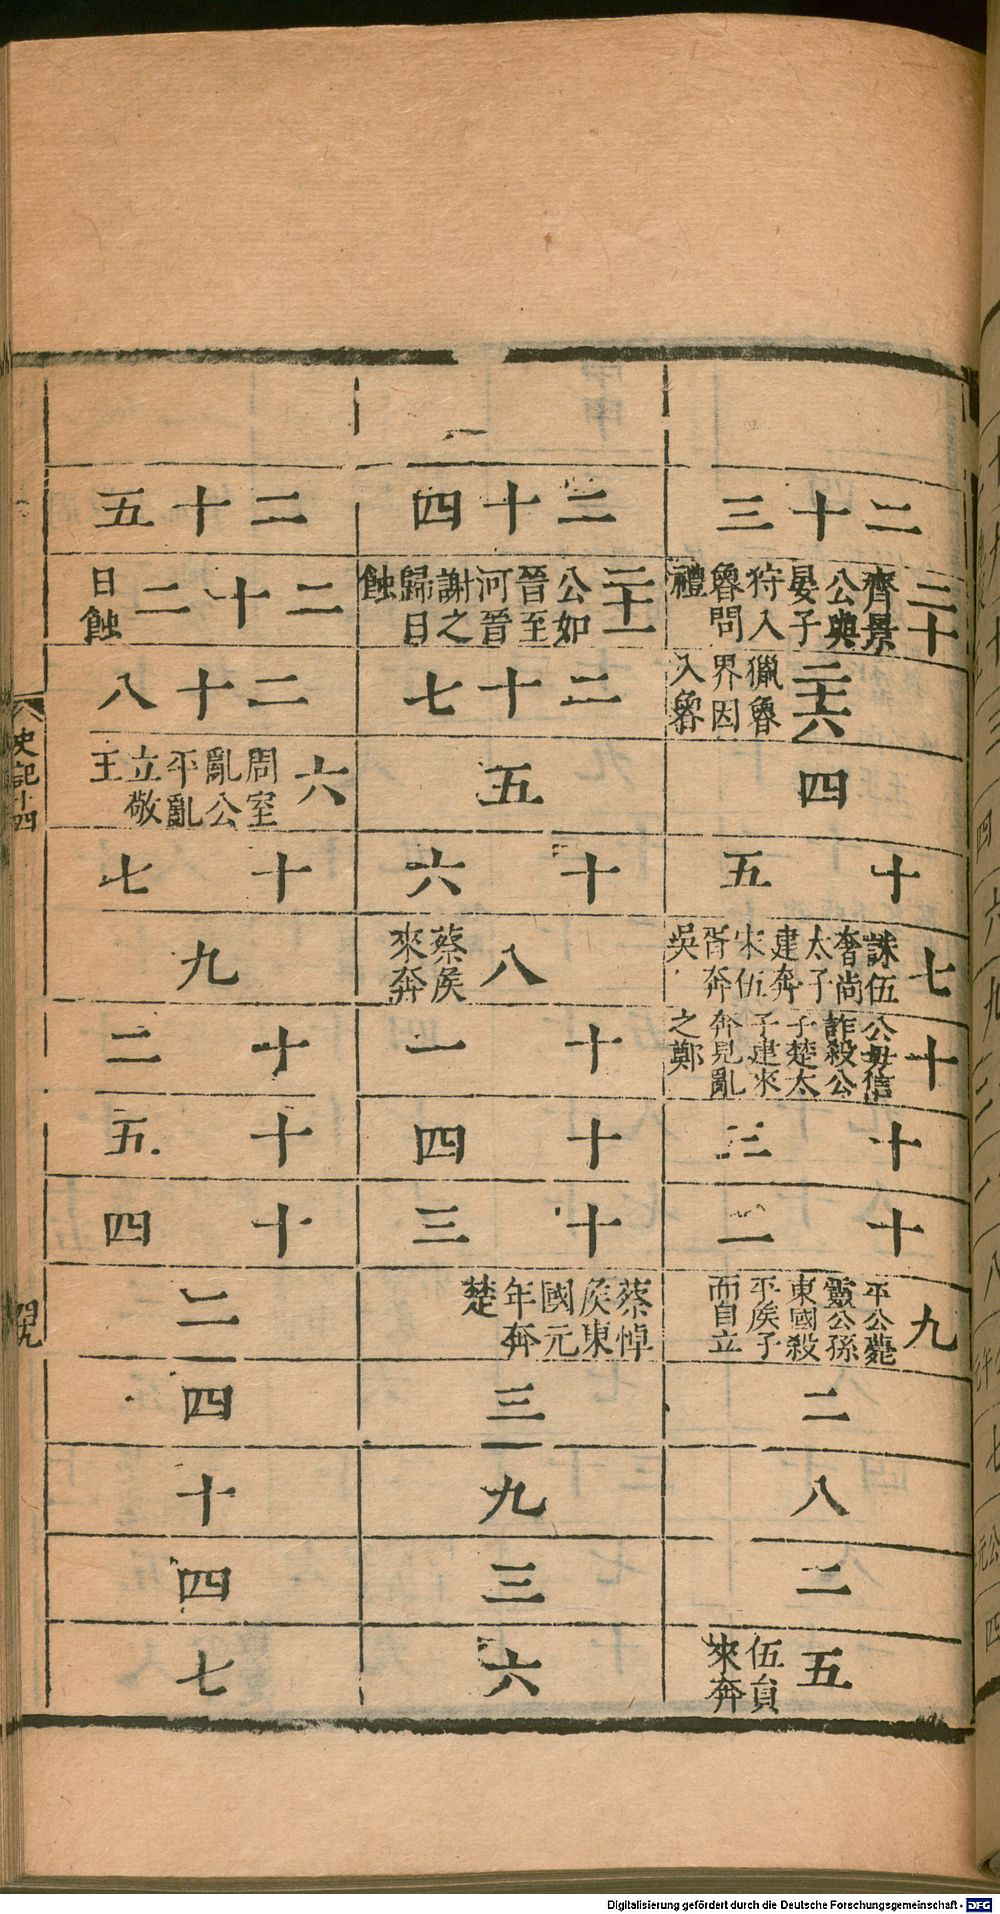 二十三
二十
齊景
公與
晏子
狩入
魯問
禮
二十六
獵魯
界因
入魯
四
十五
七
誅伍
奢尚
太子
建奔
宋伍
胥奔
吳
十
公毋信
詐殺公
子楚太
子建來
奔見亂
之鄭
十三
十二
九
平公薨
靈公孫
東國殺
平侯子
而自立
二
八
二
五
伍員
來奔
二十四
二十一
公如
晉至
河晉
謝之
歸日
蝕
二十七
五
十六
八
蔡侯
來奔
十一
十四
十三
蔡悼
侯東
國元
年奔
楚
三
九
三
六
二十五
二十二
日蝕
二十八
六
周室
亂公
平亂
立敬
王
十七
九
十二
十五
十四
二
四
十
四
七
史記十四
四九
Digitalisierung gefördert durch die Deutsche Forschungsgemeinschaft - DFG